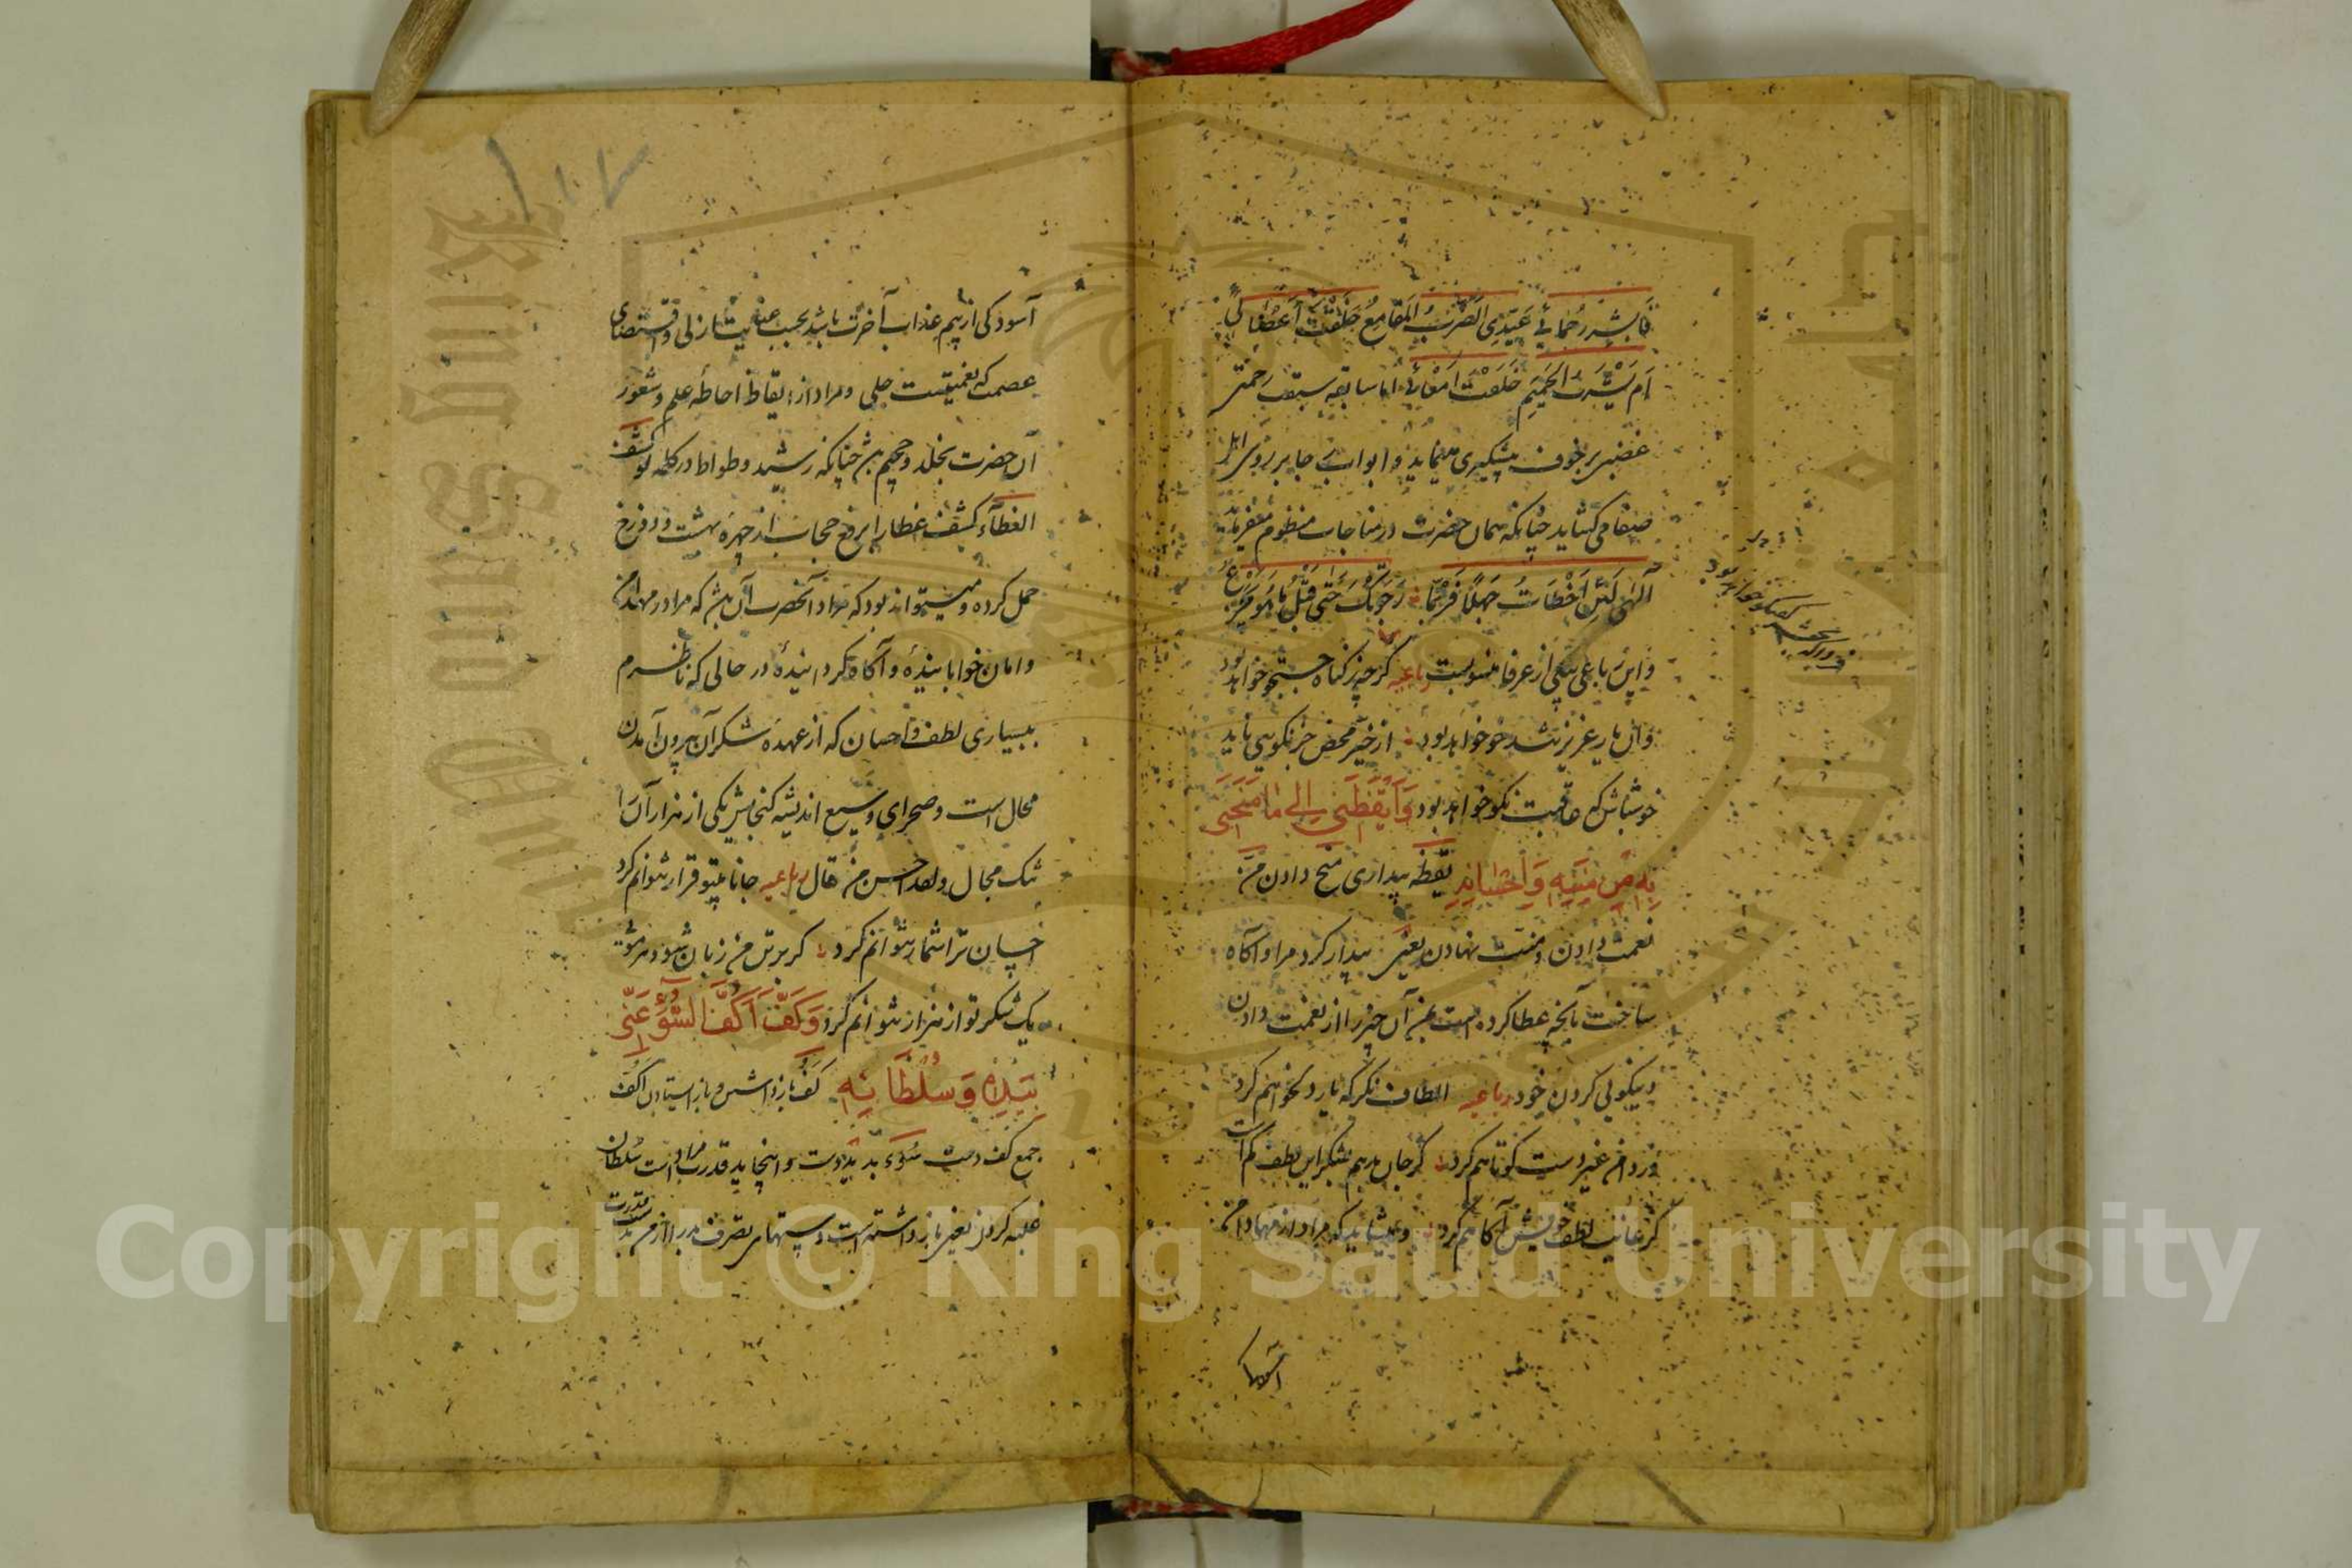 ام لشرب الحمیم خلقت امعائی اما سابقه سبقت رحمتی
غضبی بر خوف پیشگیری مینماید و ابواب رجا بر روی اهل
صفا می‌کشاید چنانکه همان حضرت در مناجات منظوم میفرماید
الهی لئن اخطات جهلا فربما رجوتک حتی قیل ما هو یجزع
و این رباعی بیکی از عرفا منسوبست رباعیه گر چه ز گناه جستجو خواهد بود
وان یار عزیز تندخو خواهد بود از خیر محض جز نکویی ناید
خوشباش که عاقبت نکو خواهد بود وَاَیْقَظَنی اِلی مٰا مَنَحَنی
بِهِ مِنْ مِنَنِهِ وَاِحْسٰانِهِ یقظه بیداری منح دادن من
نعمت دادن و منت نهادن یعنی بیدار کرد مرا و آگاه
ساخت بآنچه عطا کرده است بمن آن چیز را از نعمت دادن
و نیکوئی کردن خود رباعیه الطاف نگر که یار دلخواهم کرد
وز دامن غیر دست کوتاهم کرد گر جان بدهم بشکر این لطف کم است
کز غایت لطف خویش آگاهم کرد و میشاید که مراد از مهاد امن
آسودگی
آسودگی از بیم عذاب آخرت باشد بحسب عنایت ازلی و اقتضای
عصمت که نعمتیست جلی و مراد از ایقاظ احاطه علم و شعور
آن حضرت بخلد و جحیم باشد چنانکه رشید وطواط در کلمه لو کشف
الغطاء کشف غطا را برفع حجاب از چهره بهشت و دوزخ
حمل کرده و میتواند بود که مراد آنحضرت آن باشد که مرا در مهد امن
و امان خوابانیده و آگاه گردانیده در حالی که ناظرم
ببسیاری لطف و احسان که از عهده شکر آن بیرون آمدن
محال است و صحرای وسیع اندیشه گنجایش یکی از هزار آن را
تنگ مجال و لقد احسن من قال رباعیه جانا بتو قرار نتوانم کرد
احسان ترا شمار نتوانم کرد گر بر تن من زبان شود هر موئی
یک شکر تو از هزار نتوانم کرد وَکَفَّ اَکُفَّ السُّوءِ عَنّی
بِیَدِهِ وَسُلْطٰانِهِ کف باز داشتن و باز ایستادن اکف
جمع کف دست سوء بد ید دست و اینجا ید قدرت مراد است سلطان
غلبه کردن یعنی باز داشته است دستهای تصرف بد را از من بدست قدرت